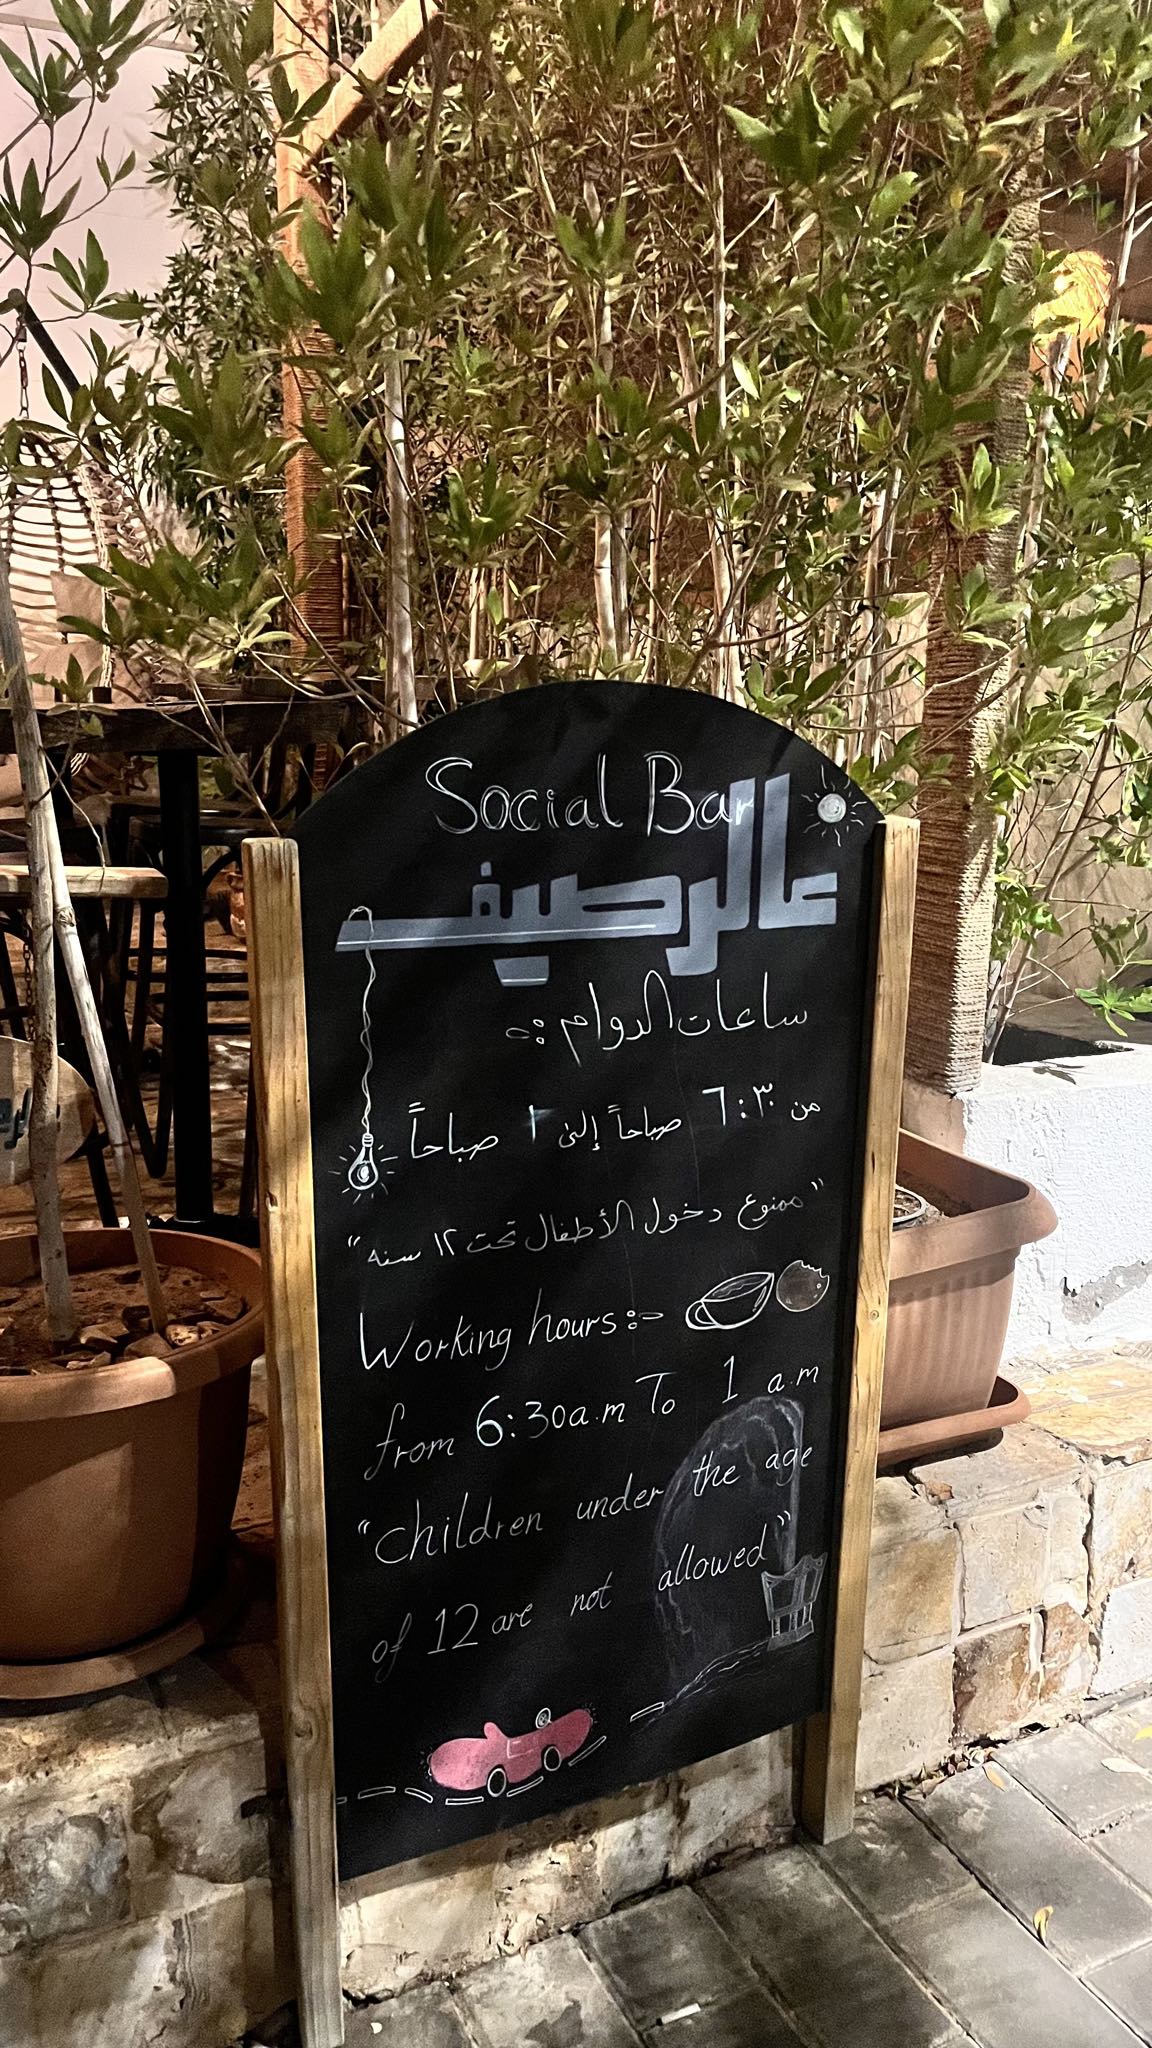 Social Bar
عالرصيف
ساعات الدوام :-
من ٦:٣٠ صباحاً إلى ١ صباحاً
"ممنوع دخول الأطفال تحت ١٢ سنه"
Working hours :-
from 6:30a.m To 1 a.m
"children under the age
of 12 are not allowed"